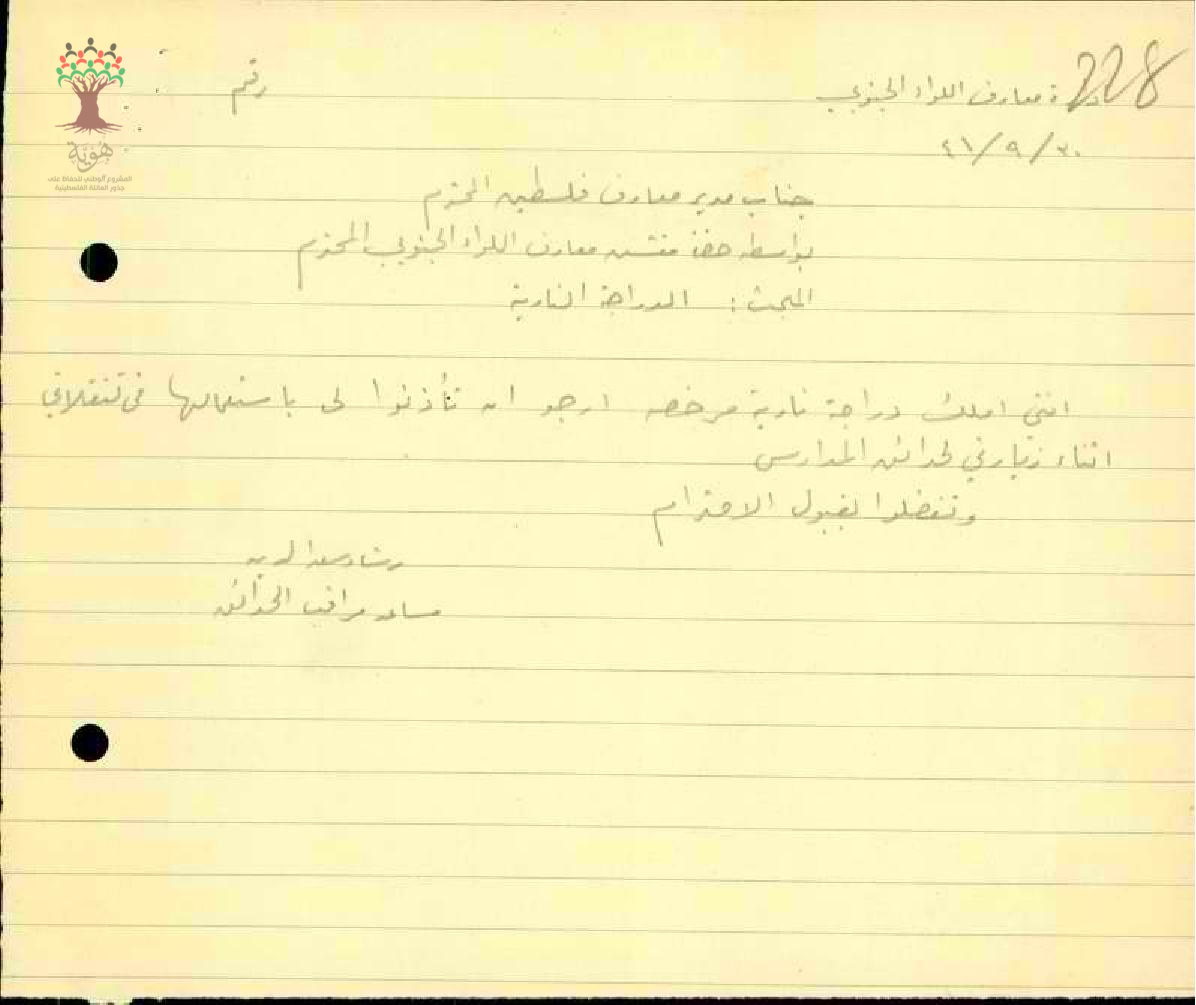 228
دائرة معارف اللواء الجنوبي
رقم
٣٠/٩/٤١
جناب مدير معارف فلسطين المحترم
بواسطة حضرة مفتش معارف اللواء الجنوبي المحترم
المبحث : الدراجة النارية
انني املك دراجة نارية مرخصه ارجو ان تأذنوا لي باستعمالها في تنقلاتي
اثناء زيارتي لحدائق المدارس
وتفضلوا بقبول الاحترام
رشاد سعد الدين
مساعد مراقب الحدائق
هوية
المشروع الوطني للحفاظ على
جذور العائلة الفلسطينية